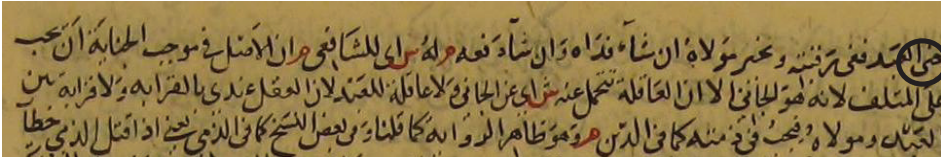 جنى العبد ففى رقبته ويخير مولاه ان شاء فداه وان شاء دفعه م له ش اى للشافعى م ان الاصل فى موجب الجناية ان يجب
على المتلف لانه هو الجانى الا ان العاقلة تتحمل عنه ش اى عن الجانى ولا عاقلة للعبد لان العقل عندى بالقرابه ولا قرابة بين
العبد ومولاه فيجب فى ذمته كما فى الدين م وهو ظاهر الروايه كما قلنا وفى بعض النسخ كما فى الذمى يعنى اذا قتل الذمى خطأ